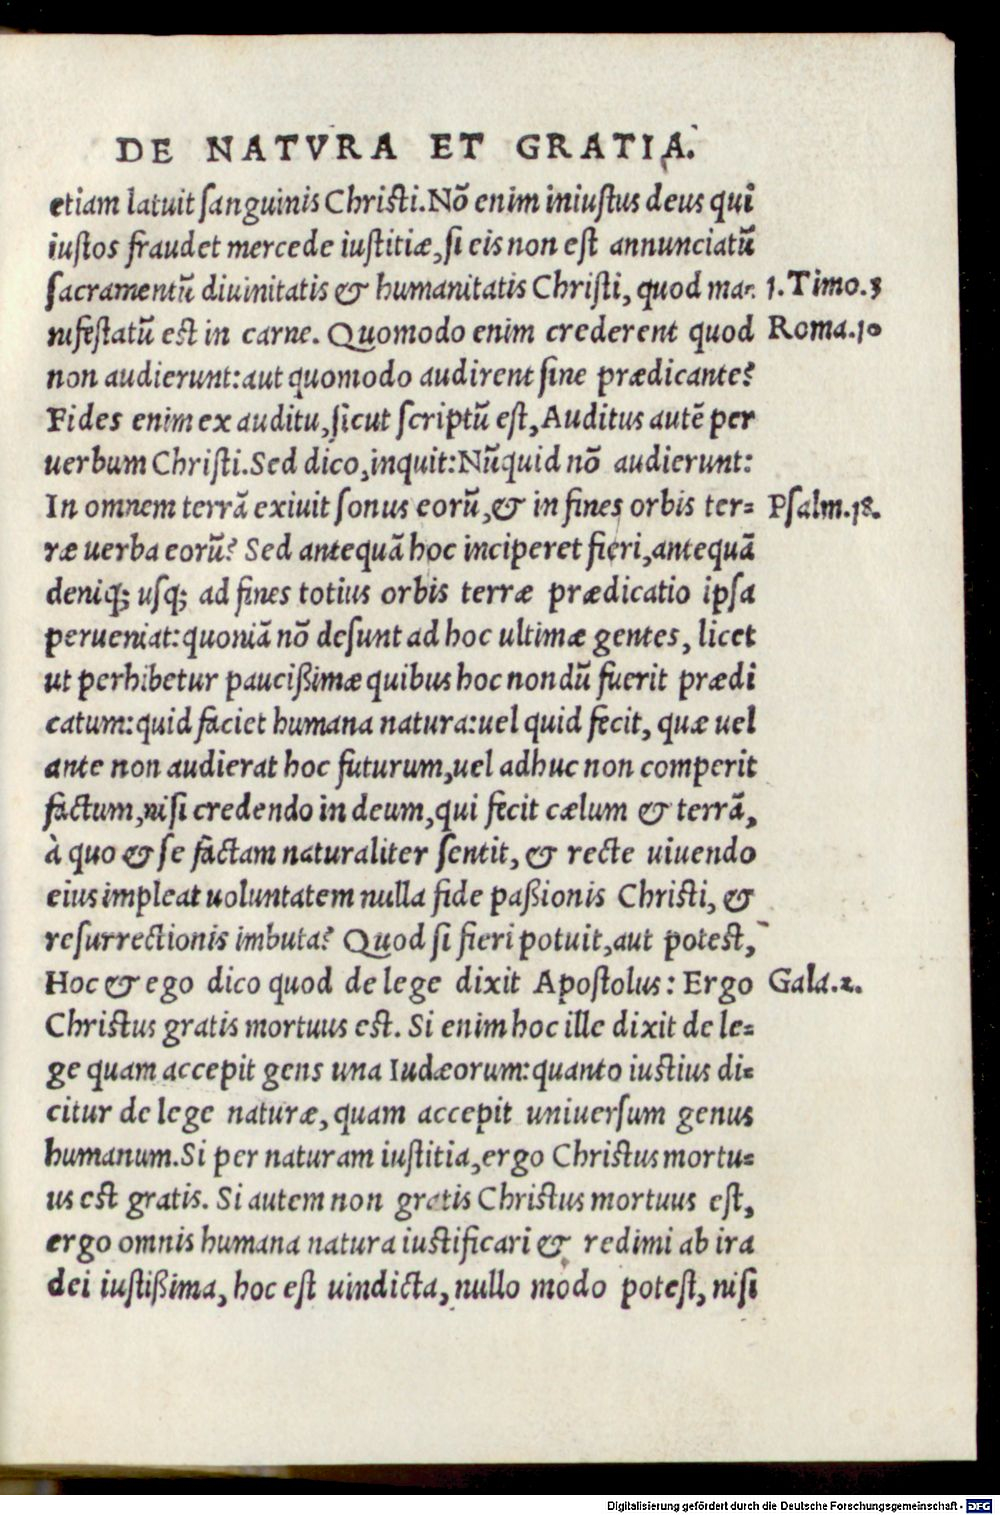 DE NATVRA ET GRATIA.
etiam latuit sanguinis Christi. Nõ enim iniustus deus qui
iustos fraudet mercede iustitiæ, si eis non est annunciatũ
sacramentũ diuinitatis & humanitatis Christi, quod ma- 1. Timo. 3
nifestatũ est in carne. Quomodo enim crederent quod Roma. 10
non audierunt: aut quomodo audirent sine prædicante?
Fides enim ex auditu, sicut scriptũ est, Auditus autẽ per
uerbum Christi. Sed dico, inquit: Nũquid nõ audierunt:
In omnem terrã exiuit sonus eorũ, & in fines orbis ter= Psalm. 18.
ræ uerba eorũ? Sed antequã hoc inciperet fieri, antequã
deniq; usq; ad fines totius orbis terræ prædicatio ipsa
perueniat: quoniã nõ desunt ad hoc ultimæ gentes, licet
ut perhibetur paucißimæ quibus hoc nondũ fuerit prædi
catum: quid faciet humana natura: uel quid fecit, quæ uel
ante non audierat hoc futurum, uel adhuc non comperit
factum, nisi credendo in deum, qui fecit cælum & terrã,
à quo & se factam naturaliter sentit, & recte uiuendo
eius impleat uoluntatem nulla fide paßionis Christi, &
resurrectionis imbuta? Quod si fieri potuit, aut potest,
Hoc & ego dico quod de lege dixit Apostolus: Ergo Gala. 2.
Christus gratis mortuus est. Si enim hoc ille dixit de le=
ge quam accepit gens una Iudæorum: quanto iustius di=
citur de lege naturæ, quam accepit uniuersum genus
humanum. Si per naturam iustitia, ergo Christus mortu=
us est gratis. Si autem non gratis Christus mortuus est,
ergo omnis humana natura iustificari & redimi ab ira
dei iustißima, hoc est uindicta, nullo modo potest, nisi
Digitalisierung gefördert durch die Deutsche Forschungsgemeinschaft - DFG